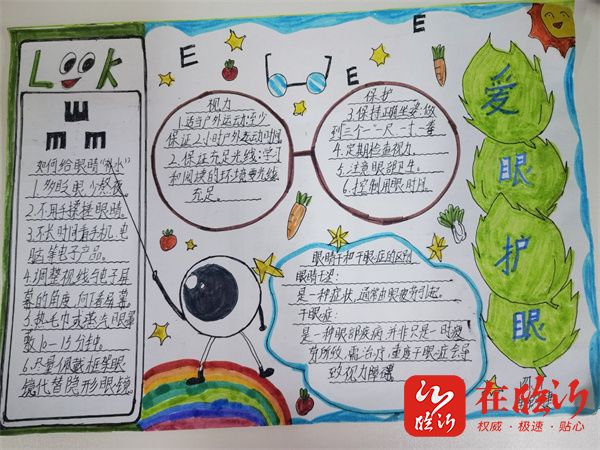 LOOK
E
E
E
如何给眼睛"放水"
1.多眨眼少熬夜。
2.不用手揉揉眼睛。
3.不长时间看手机、电
脑等电子产品。
4.调整视线与电子屏
幕的角度,向下看屏幕
5.热毛巾或蒸汽眼罩
敷10-15分钟。
6.尽量佩戴框架眼
镜代替隐形眼镜
视力
1.适当户外运动至少
保证2小时户外活动时间
2.保证充足光线:学习
和阅读的环境要光线
充足。
保护
3.保持正确坐姿:做
到三个"一尺一寸一拳
4.定期检查视力
5.注意眼部卫生。
6.控制用眼时间。
眼睛干和干眼症的区别
眼睛干涩:
是一种症状,通常由眼疲劳引起。
干眼症:
是一种眼部疾病,并非只是一时疲
劳所致,需治疗,重度干眼症会导
致视力障碍
爱
眼
护
眼
在临沂
权威·极速·贴心